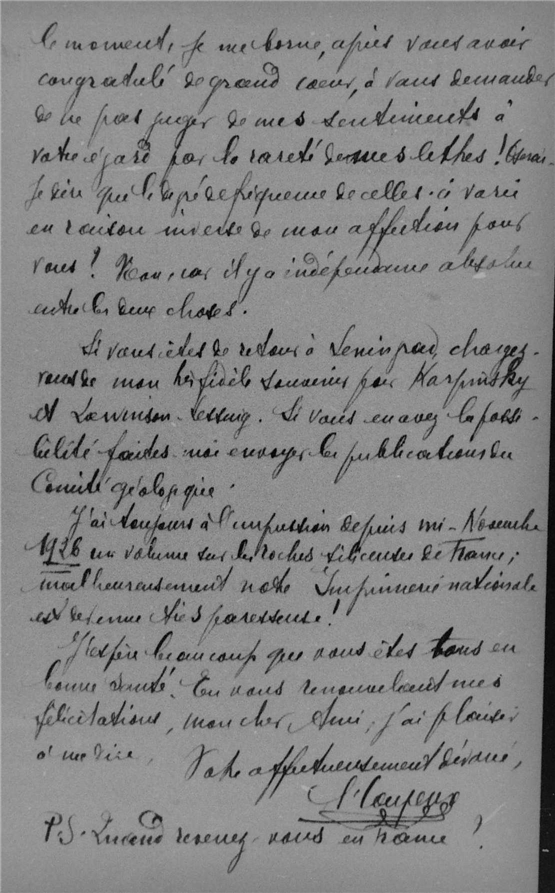 le moment, je me borne, après vous avoir
congratulé de grand cœur, à vous demander
de ne pas juger de mes sentiments à
votre égard par la rareté de mes lettres ! Oserai-
je dire que le degré de fréquence de celles-ci varie
en raison inverse de mon affection pour
vous ? Non, car il y a indépendance absolue
entre les deux choses.
Si vous êtes de retour à Leningrad, chargez-
vous de mon très fidèle souvenir pour Karpinsky
et Lœwinson-Lessing. Si vous en avez la possi-
bilité faites-moi envoyer les publications du
Comité géologique.
J'ai toujours à l'impression depuis mi-Novembre
1926 un volume sur les roches siliceuses de France ;
malheureusement notre Imprimerie nationale
est devenue très paresseuse !
J'espère beaucoup que vous êtes tous en
bonne santé. En vous renouvelant mes
félicitations, mon cher Ami, j'ai plaisir
à me dire,
Votre affectueusement dévoué,
P.S. Quand revenez-vous en France ?